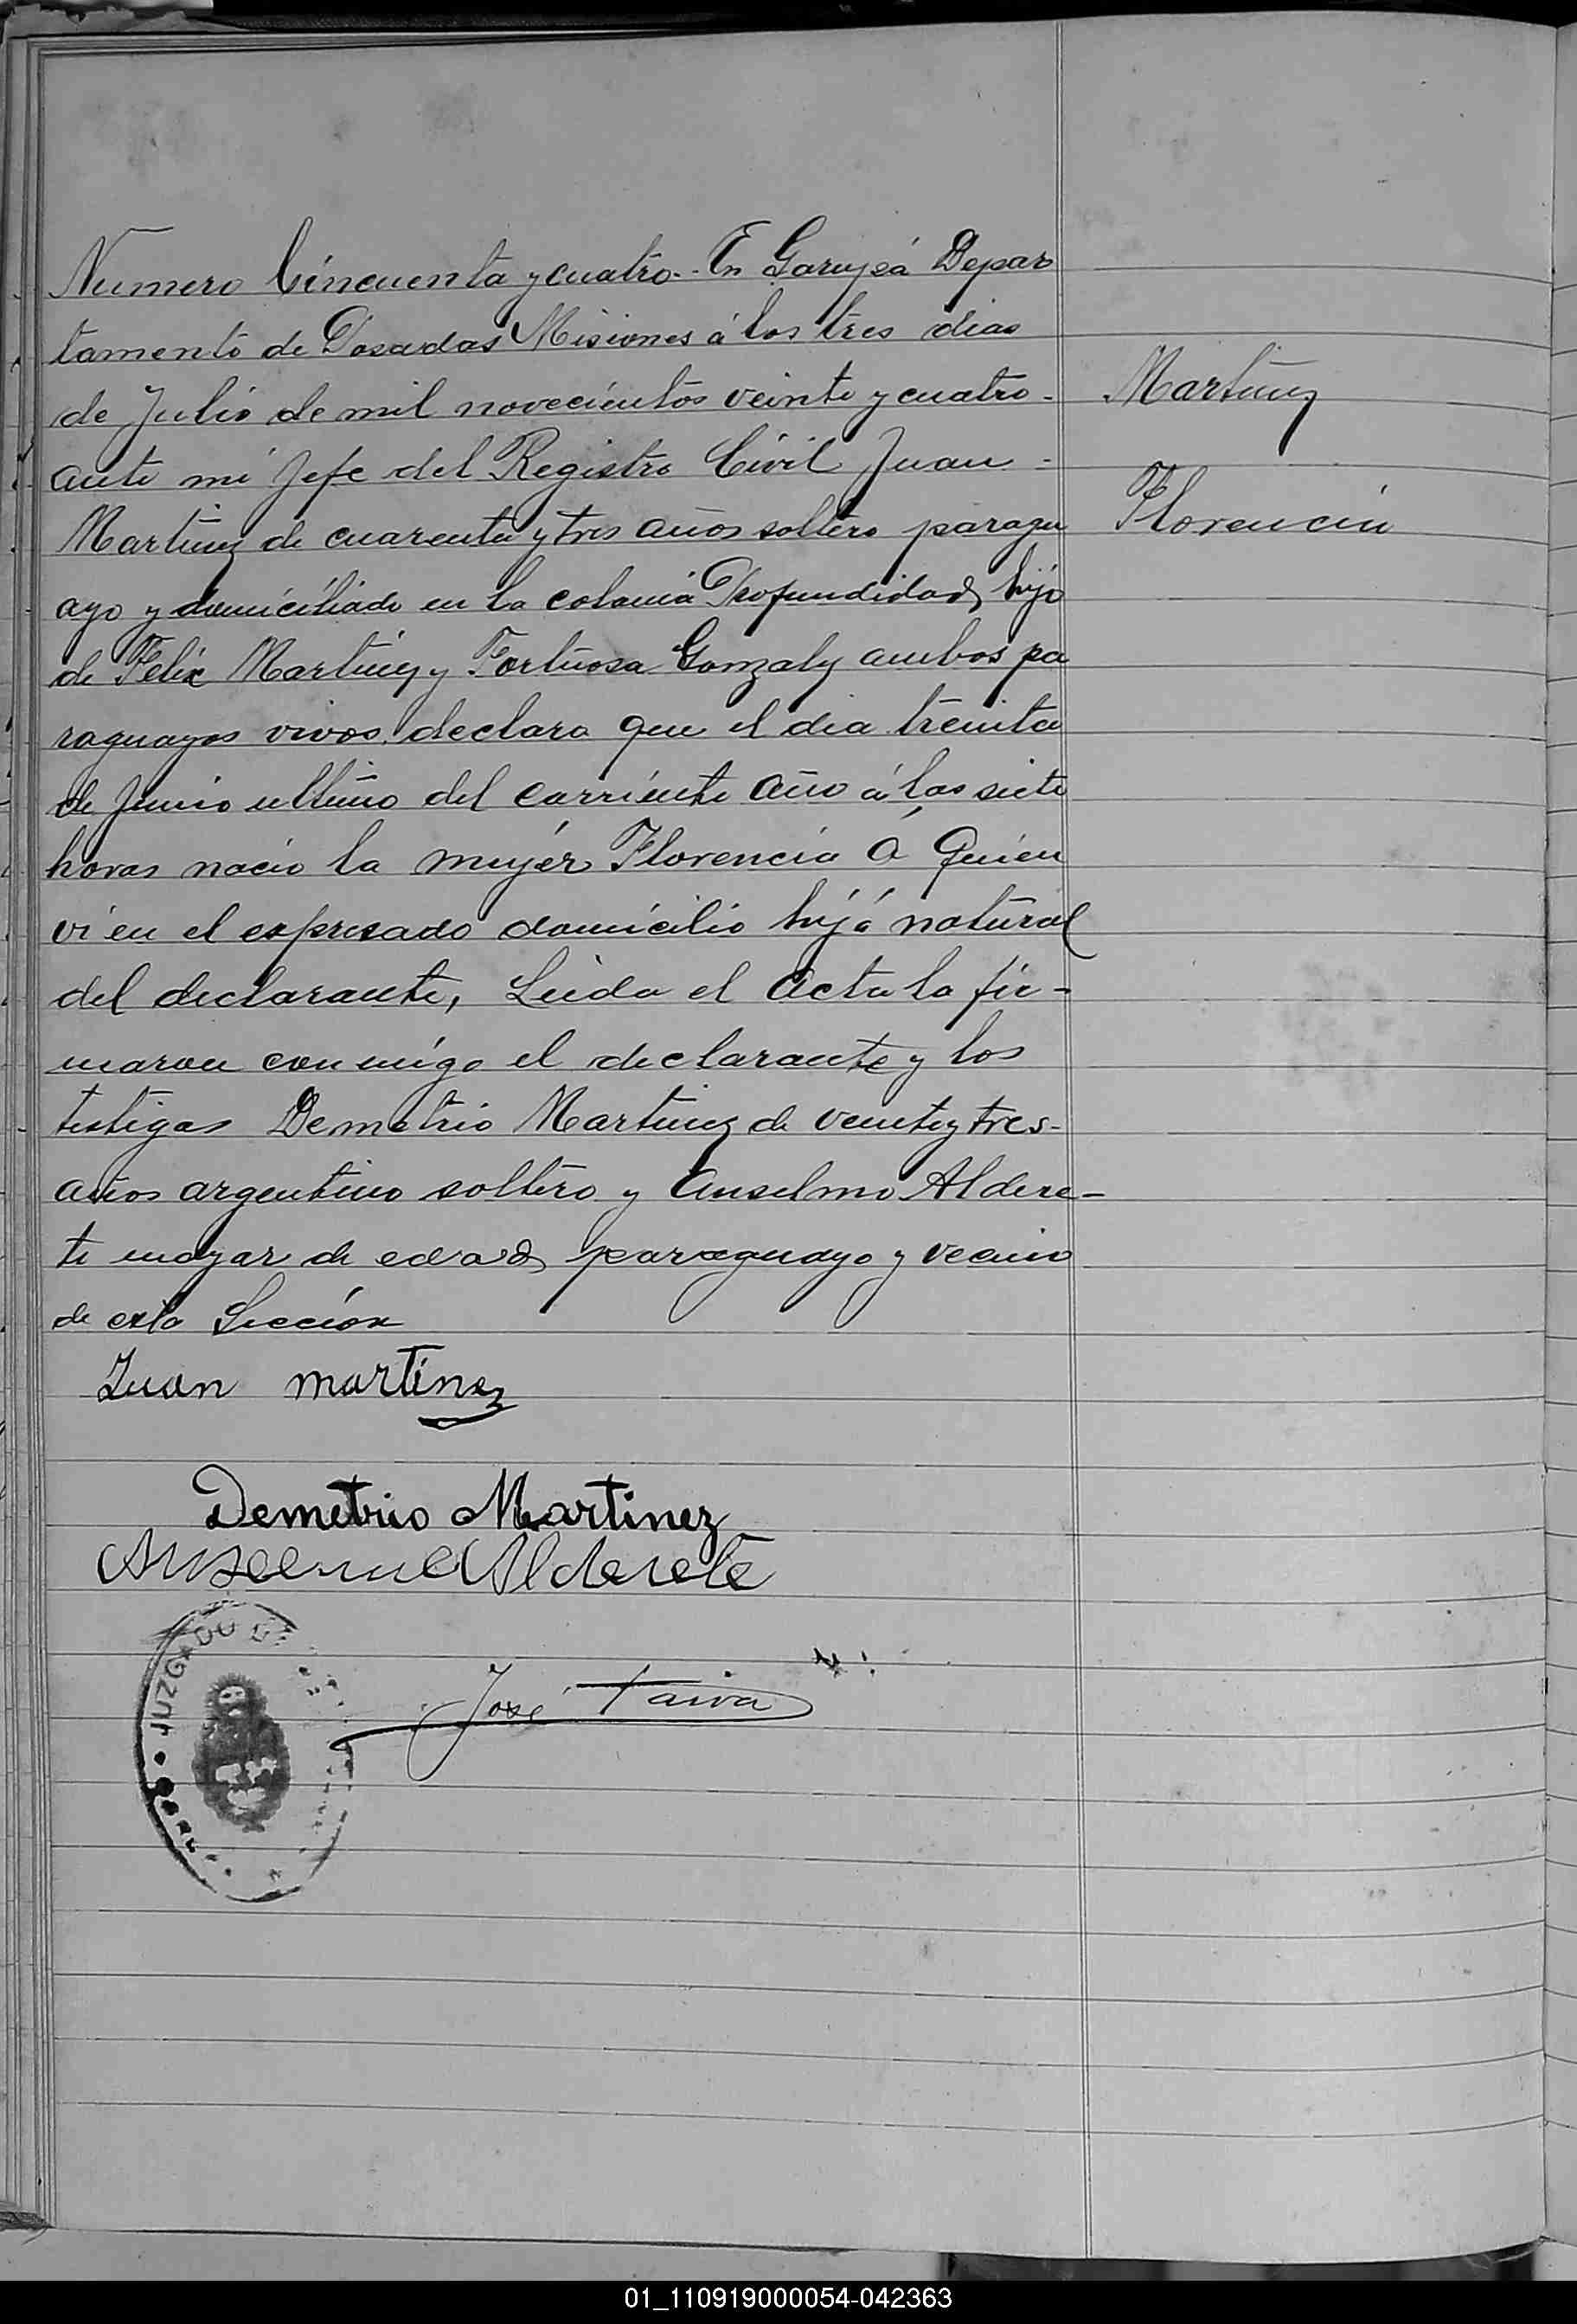 Numero Cincuenta y cuatro.- En Garupá Depar
tamento de Posadas Misiones á los tres dias
de Julio de mil novecientos veinte y cuatro-
ante mi Jefe del Registro Civil Juan -
Martinez de cuarenta y tres años soltero paragu
ayo y domiciliado en la colonia Profundidad, hijo
de Felix Martinez y Fortuosa Gonzalez ambos pa
raguayos vivos, declara que el dia treinta
de Junio ultimo del corriente año á las siete
horas nacio la mujer Florencia á quien
vi en el expresado domicilio hija natural
del declarante, Leida el acta la fir-
maron conmigo el declarante y los
testigos Demetrio Martinez de veinte y tres-
años argentino soltero y Anselmo Aldere-
te mayor de edad, paraguayo y vecino
de esta Sección
Martinez
Florencia
Juan martinez
Demetrio Martinez
Anselmo Alderete
José Paiva
JUZGADO DE
01_110919000054-042363